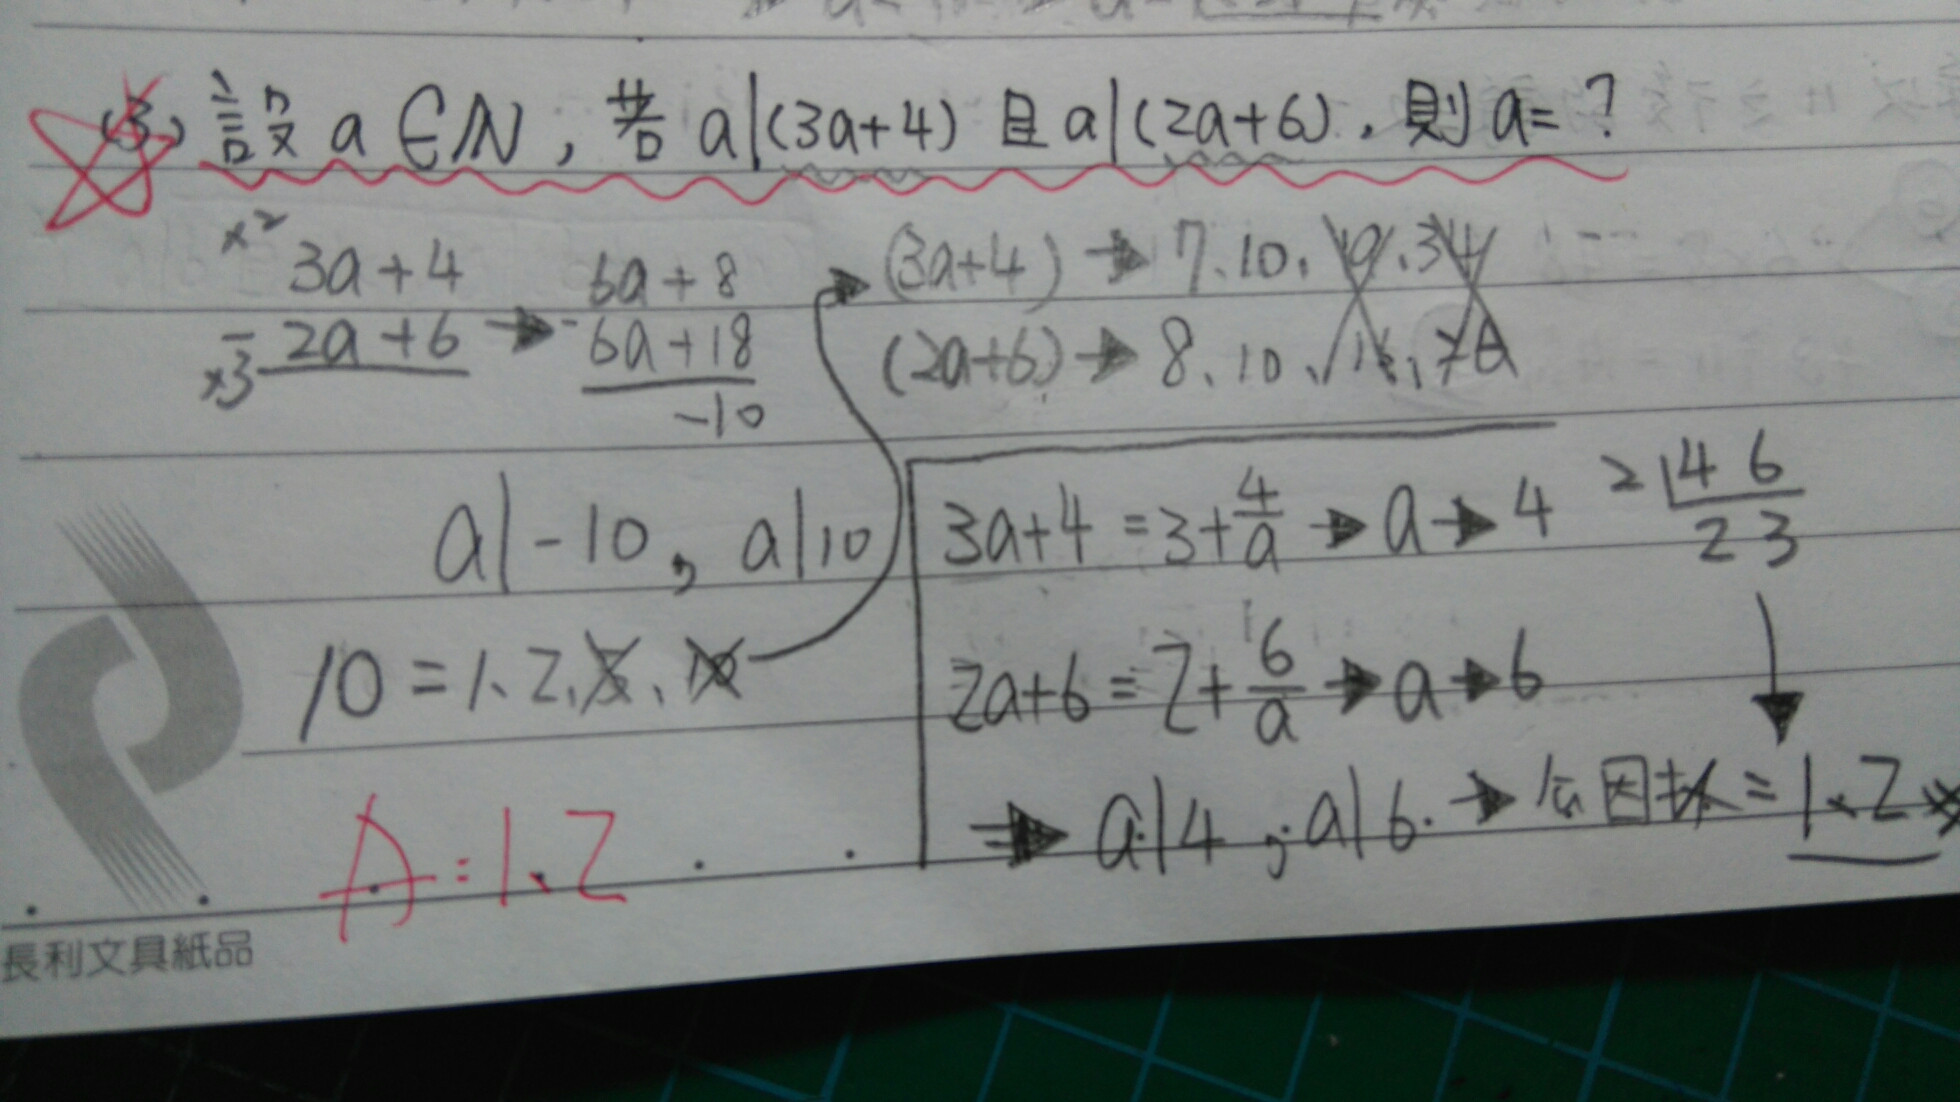 (3) 設 a ∈ N , 若 a|(3a+4) 且 a|(2a+6) , 則 a = ?
×2 3a+4
- ×3 2a+6
→
6a+8
- 6a+18
-10
a|-10 , a|10
10 = 1、2、5、10
(3a+4) → 7、10、19、34
(2a+6) → 8、10、16、26
3a+4 = 3+4/a → a → 4
2a+6 = 2+6/a → a → 6
⇒ a|4 ; a|6 → 公因數 = 1、2
2 | 4 6
2 3
A : 1、2
長利文具紙品